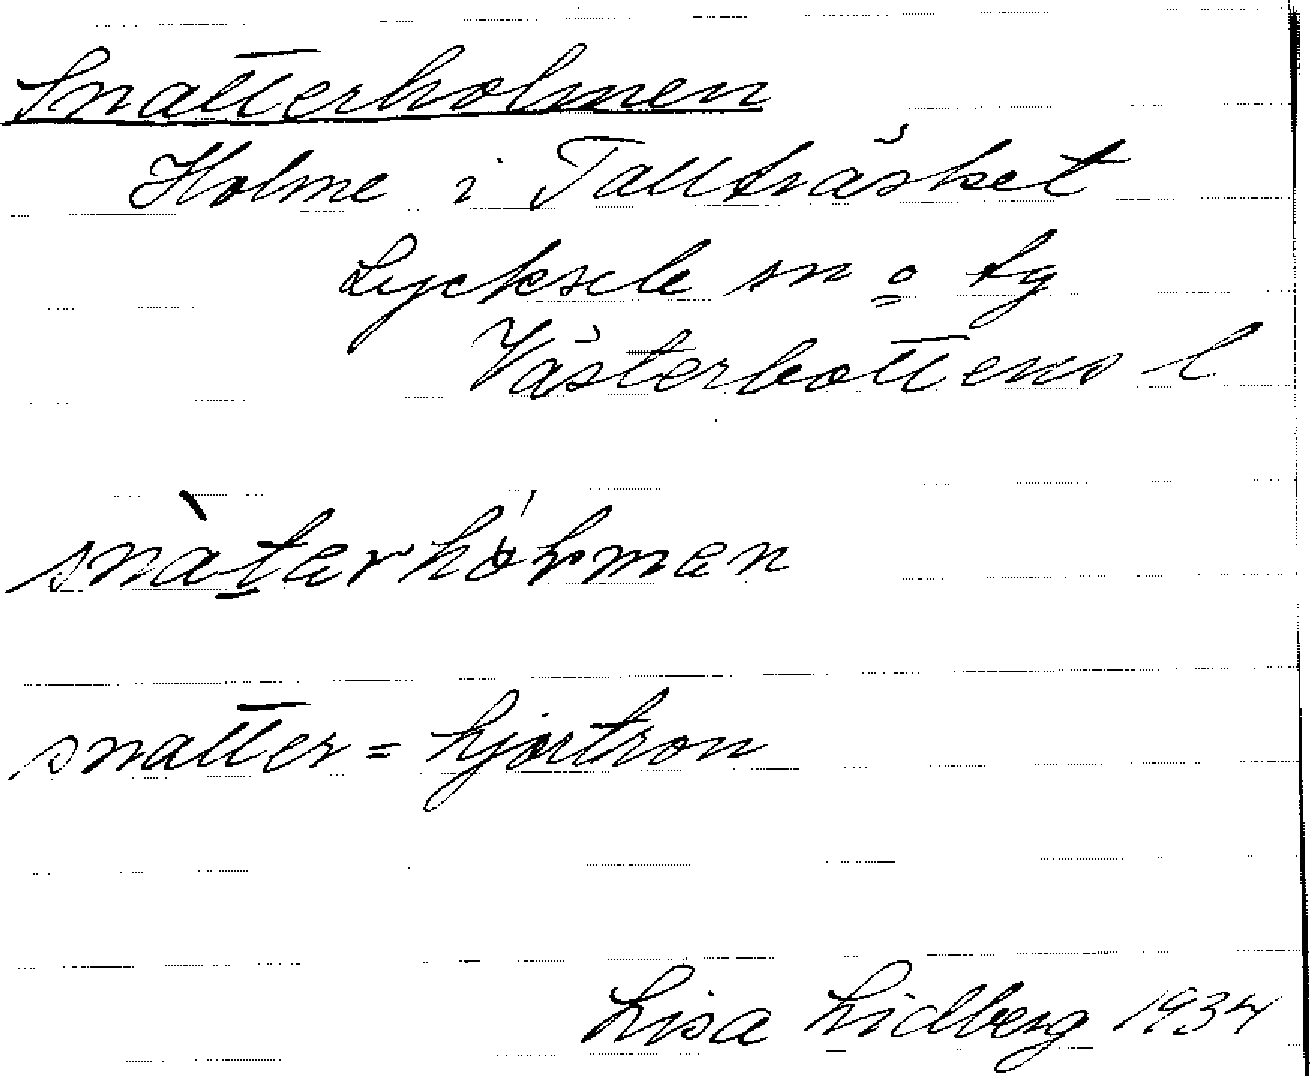 Snatterholmen
Holme i Tallträsket
Lycksele sn o tg
Västerbottens l
snàtərhóƚmən
snatter = hjortron
Lisa Lidberg 1934